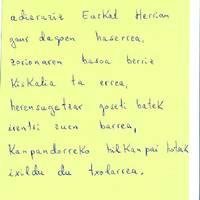 adierazi Euskal Herrian
gaur dagoen haserrea,
zorionaren basoa berriz
kiskalia ta errea,
herensugetzar goseti batek
irentsi zuen barrea,
kanpandorreko hilkanpai hotsak
ixildu du txolarrea.